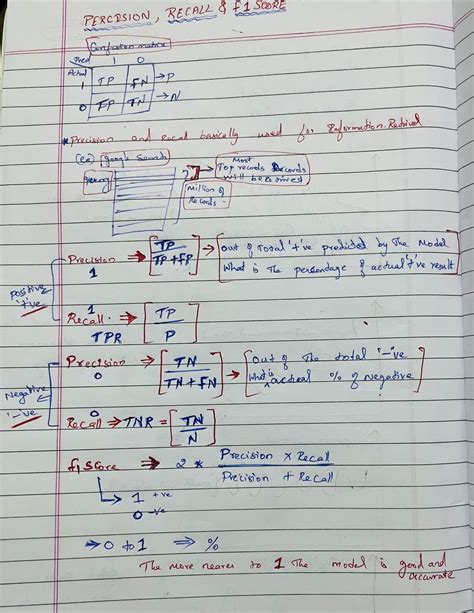 PERCISION, RECALL & f1 SCORE
Confusion matrix
Pred 1 0
Actual
1 TP FN → P
0 FP TN → N
* Precision and Recal basically used for Information. Retrival
(ex) google Search
Most
Top records Records
will be
query
Million of
Records -
Precision 1 ⇒ [TP / TP + FP] → [Out of Total '+'ve predicted by The Model
What is The percentage of actual '+'ve result]
Positive
'+'ve
Recall 1 → [TP / P]
TPR
Precision 0 → [TN / TN + FN] → [Out of The total '-'ve
What is actual % of Negative]
Negative
'-'ve
Recall 0 → TNR = [TN / N]
f1 Score ⇒ 2 * Precision x Recall / Precision + Recall
↳ 1 +ve
0 -ve
→ 0 to 1 ⇒ %
The more nearer to 1 The model is good and
accurate